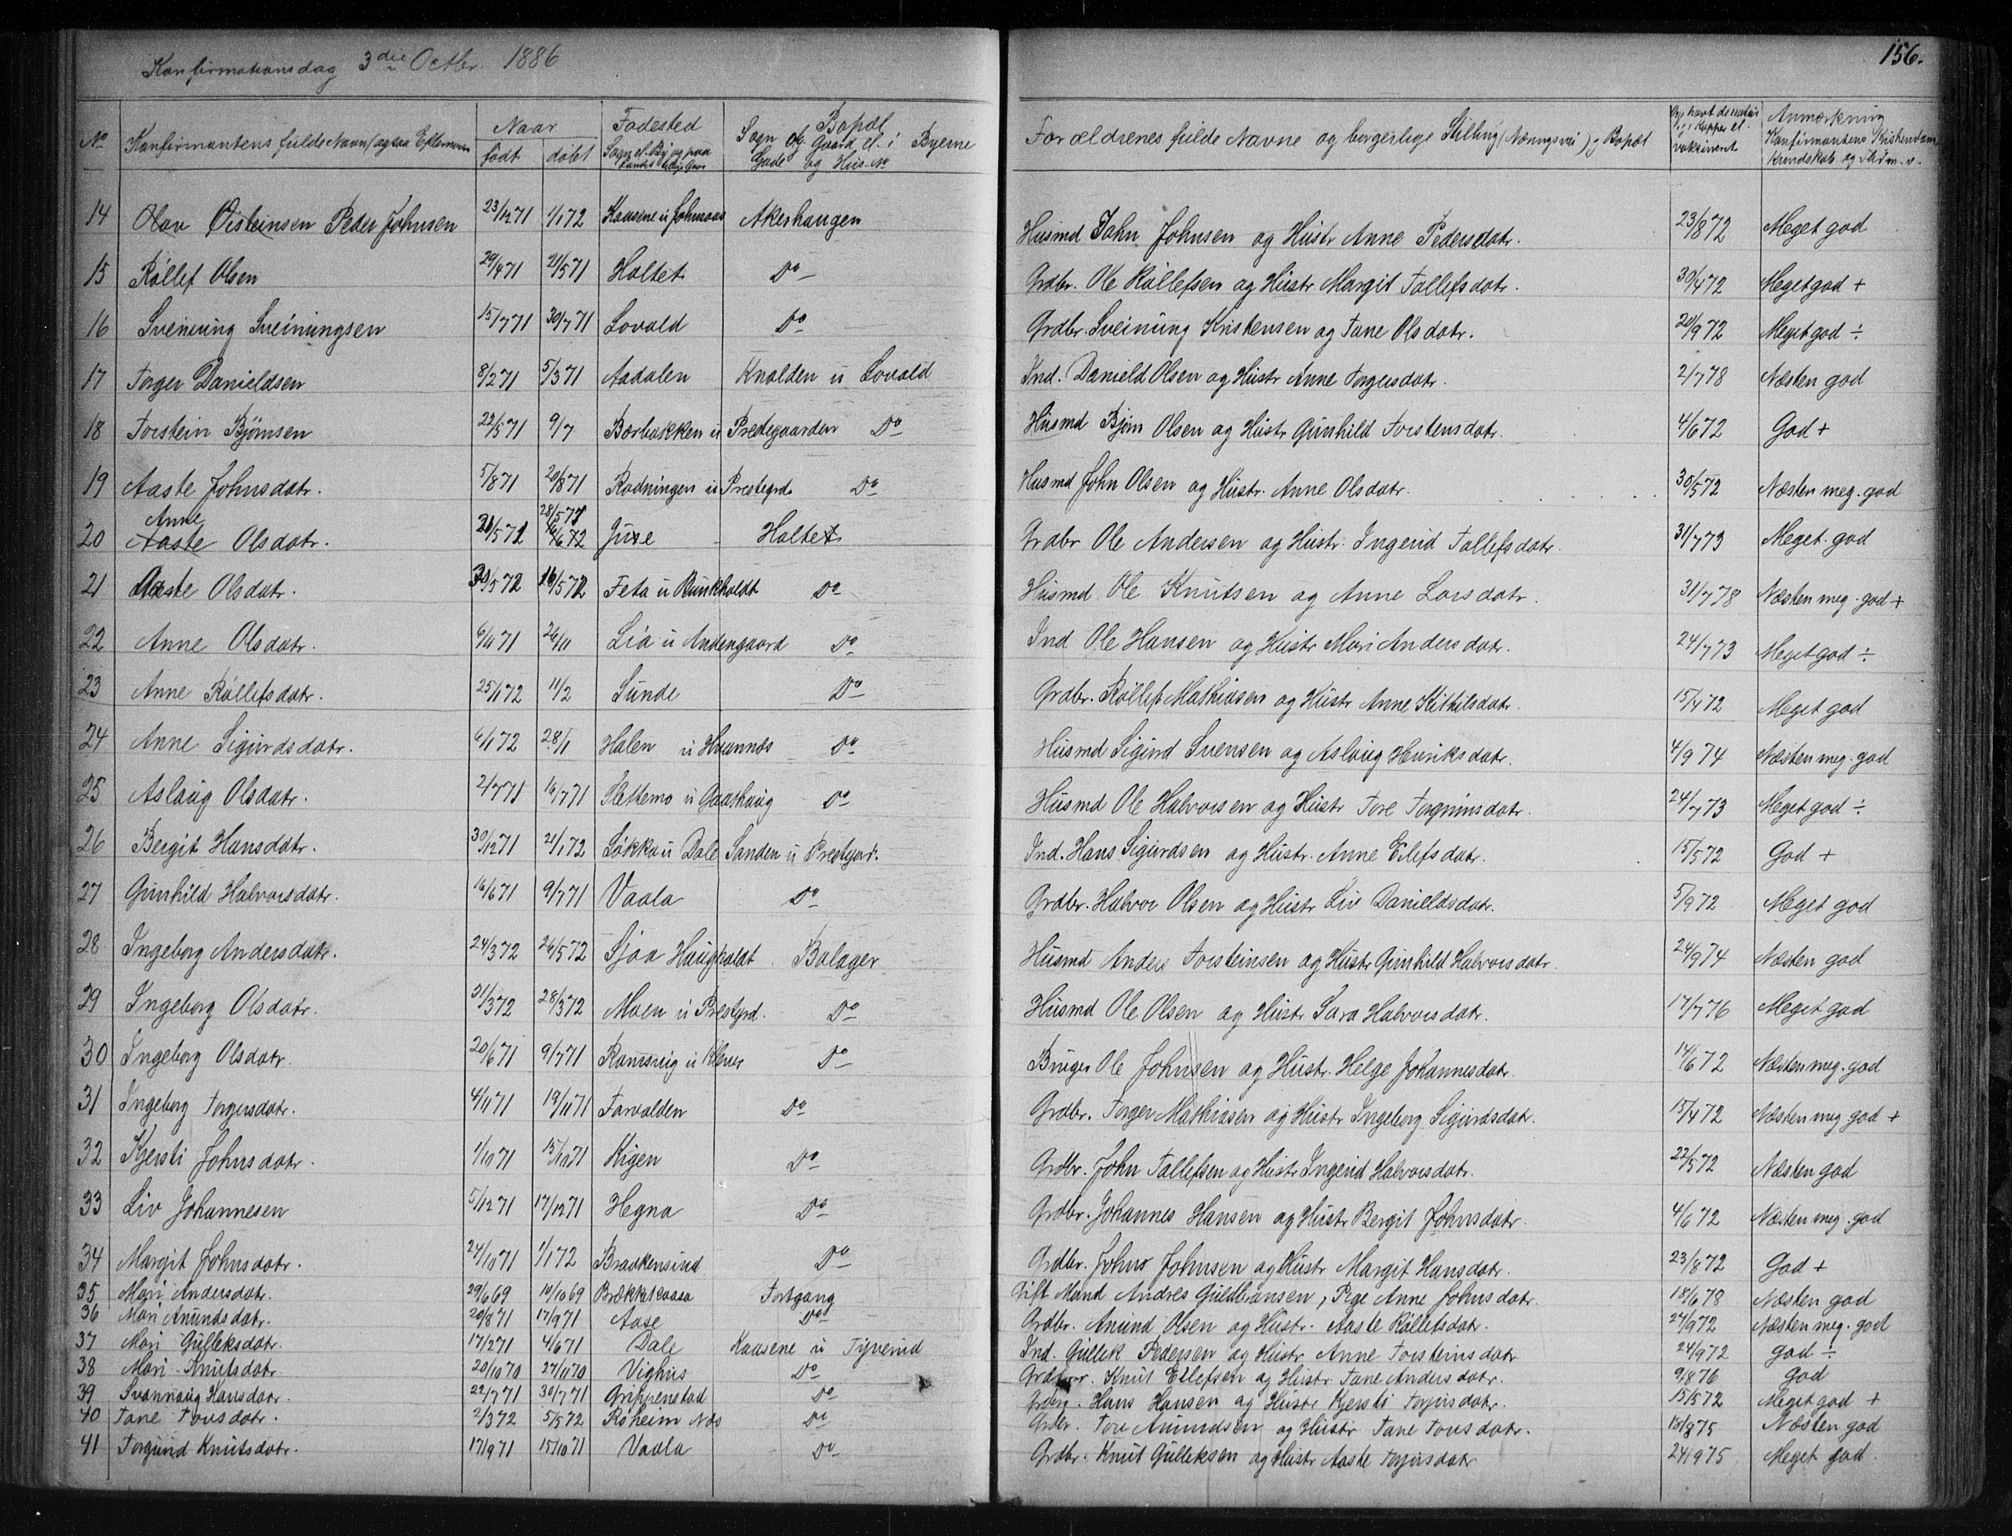 Konfirmationsdag 3die Octbr. 1886
156.
No Konfirmantens fulde Navn (ogsaa Efternavn Naar født døbt Fødested Sogn el. By og paa Landet tillige Gaar Bopæl Sogn og Gaard el. i Byerne Gade og Hus-No Forældrenes fulde Navne og borgerlige Stilling (Næringsvei) og Bopæl vakcineret Anmerkning Konfirmantens Kristendoms Kundskab og Flid m. v.
14 Olav Øisteinsen Peder Johnsen 23/1271 1/172 Kaasene u Johnsaas Akerhaugen Husmd John Johnsen og Hustr Anne Pedersdatr. 23/872 Meget god
15 Røllef Olsen 29/471 21/571 Holtet Do Grdbr. Ole Røllefsen og Hustr Margit Tollefsdatr. 30/472 Meget god +
16 Sveinung Sveinungsen 15/771 30/771 Lovald Do Grdbr. Sveinung Kristensen og Tane Olsdatr. 20/972 Meget god ÷
17 Torger Danieldsen 8/271 5/371 Aadalen Knalden u Lovald Ind. Danield Olsen og Hustr Anne Torgersdatr. 2/778 Næsten god
18 Torstein Bjørnsen 22/571 9/7 Borbakken u Prestegaarden Do Husmd Bjørn Olsen og Hustr Gunhild Torstensdatr. 4/672 God +
19 Aaste Johnsdatr. 5/871 20/871 Rodningen u Prestegrd. Do Husmd John Olsen og Hustr. Anne Olsdatr. 30/572 Næsten meg. god
Anne 28/571
20 Aaste Olsdatr. 21/571 16/672 Juve Holtet Grdbr Ole Andersen og Hustr. Ingerid Tollefsdatr. 31/773 Meget god
21 Aaste Olsdatr. 30/572 16/572 Feta u Bunkholdt Do Husmd Ole Knutsen og Anne Larsdatr. 31/778 Næsten meg. god +
22 Anne Olsdatr. 6/1171 26/11 Lia u Andengaard Do Ind Ole Hansen og Hustr Mari Andersdatr. 24/773 Meget god ÷
23 Anne Røllefsdatr. 25/172 11/2 Sunde Do Grdbr. Røllef Mathiasen og Hustr Anne Kittilsdatr. 15/472 Meget god
24 Anne Sigurdsdatr. 6/172 28/1 Halen u Do Husmd Sigurd Svensen og Aslaug Henriksdatr. 4/974 Næsten meg. god
25 Aslaug Olsdatr. 2/771 16/771 Slettemo u Gaathaug Do Husmd Ole Halvorsen og Hustr Tore Torgrimsdatr. 24/773 Meget god ÷
26 Bergit Hansdatr. 30/1271 21/172 Løkka u Dale Sanden u Prestgrd. Ind. Hans Sigurdsen og Hustr. Anne Eilefsdatr. 15/572 God +
27 Gunhild Halvorsdatr. 16/671 9/771 Vaala Do Grdbr. Halvor Olsen og Hustr Liv Danieldsdatr. 5/972 Meget god
28 Ingeborg Andersdatr. 24/372 26/572 Sjoa Haugholdt Bolager Husmd Anders Torsteinsen og Hustr Gunhild Halvorsdatr. 24/974 Næsten god
29 Ingeborg Olsdatr. 31/372 28/372 Moen u Prestgrd. Do Husmd Ole Olsen og Hustr Sara Halvorsdatr. 17/776 Meget god
30 Ingeborg Olsdatr. 20/671 9/771 Ramsvig u Klever Do Bruger Ole Johnsen og Hustr. Helge Johannesdatr. 14/672 Næsten meg. god
31 Ingeborg Torgersdatr. 4/1171 19/1171 Farvolden Do Grdbr. Torger Mathiasen og Hustr Ingeborg Sigurdsdatr. 15/472 Næsten meg god +
32 Kjersti Johnsdatr. 1/1071 15/1071 Kigen Do Grdbr. John Tollefsen og Hustr Ingerid Halvorsdatr. 22/572 Næsten god
33 Liv Johannesen 5/1271 17/1271 Hegna Do Grdbr. Johannes Hansen og Hustr Bergit Johnsdatr. 4/672 Næsten meg. god
34 Margit Johnsdatr. 24/1071 1/172 Braakensund Do Grdbr. John Johnsen og Hustr Margit Hansdatr. 23/872 God +
35 Mari Andersdatr. 29/669 10/1069 Brækkkaasa Fortgang Gift Mand Andres Guldbransen, Pige Anne Johnsdatr. 18/678 Næsten god
36 Mari Anundsdatr. 20/871 17/971 Aase Do Grdbr. Anund Olsen og Hustr. Aaste Røllefsdatr. 27/972 Næsten meg. god
37 Mari Gulleksdatr. 17/271 4/671 Dale Kaasene u Tyverud Ind. Gullek Pedersen og Hustr Anne Torsteinsdatr 24/972 god ÷
38 Mari Knutsdatr. 20/1070 27/1170 Vighus Do Knut Eilefsen og Hustr Tane Andersdatr. 9/876 God
39 Svannaug Hansdatr. 22/771 30/771 Grippenstad Do Grdbr. Hans Hansen og Hustr Kjersti Torjusdatr. 15/572 Meget god +
40 Tane Torsdatr. 2/372 5/572 Roheim Næs Do Grdbr. Tor Anundsen og Hustr Tane Torsdatr. 18/875 Næsten god
41 Torgund Knutsdatr. 17/971 15/1071 Vaala Do Grdbr. Knut Gulleksen og Hustr Aaste Torjusdatr 24/975 Meget god.